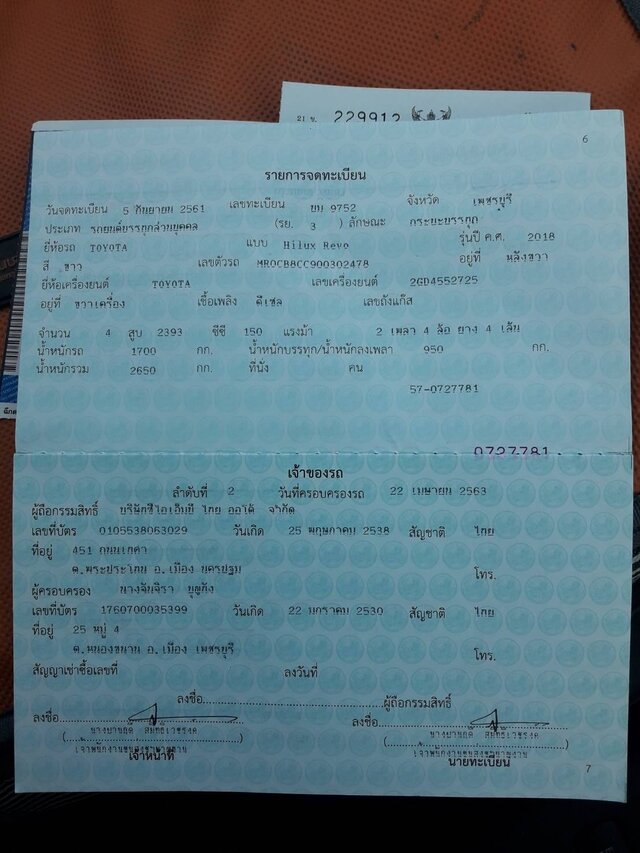 21 ข. 229912
6
รายการจดทะเบียน
วันจดทะเบียน 5 กันยายน 2561 เลขทะเบียน ยม 9752 จังหวัด เพชรบุรี
ประเภท รถยนต์บรรทุกส่วนบุคคล (รย. 3 ) ลักษณะ กระบะบรรทุก
ยี่ห้อรถ TOYOTA แบบ Hilux Revo รุ่นปี ค.ศ. 2018
สี ขาว เลขตัวรถ MR0CB8CC900302478 อยู่ที่ หลังขวา
ยี่ห้อเครื่องยนต์ TOYOTA เลขเครื่องยนต์ 2GD4552725
อยู่ที่ ขวาเครื่อง เชื้อเพลิง ดีเซล เลขถังแก๊ส
จำนวน 4 สูบ 2393 ซีซี 150 แรงม้า 2 เพลา 4 ล้อ ยาง 4 เส้น
น้ำหนักรถ 1700 กก. น้ำหนักบรรทุก/น้ำหนักลงเพลา 950 กก.
น้ำหนักรวม 2650 กก. ที่นั่ง คน
57-0727781
0727781
เจ้าของรถ
ลำดับที่ 2 วันที่ครอบครองรถ 22 เมษายน 2563
ผู้ถือกรรมสิทธิ์ บริษัทซีไอเอ็มบี ไทย ออโต้ จำกัด
เลขที่บัตร 0105538063029 วันเกิด 25 พฤษภาคม 2538 สัญชาติ ไทย
ที่อยู่ 451 ถนนเทศา
ต.พระประโทน อ.เมือง นครปฐม โทร.
ผู้ครอบครอง นางจันจิรา
เลขที่บัตร 1760700035399 วันเกิด 22 มกราคม 2530 สัญชาติ ไทย
ที่อยู่ 25 หมู่ 4
ต.หนองขนาน อ.เมือง เพชรบุรี โทร.
สัญญาเช่าซื้อเลขที่ ลงวันที่
ลงชื่อ ผู้ถือกรรมสิทธิ์
ลงชื่อ ลงชื่อ
เจ้าพนักงานขนส่งชำนาญงาน เจ้าพนักงานขนส่งชำนาญงาน
เจ้าหน้าที่ นายทะเบียน
7